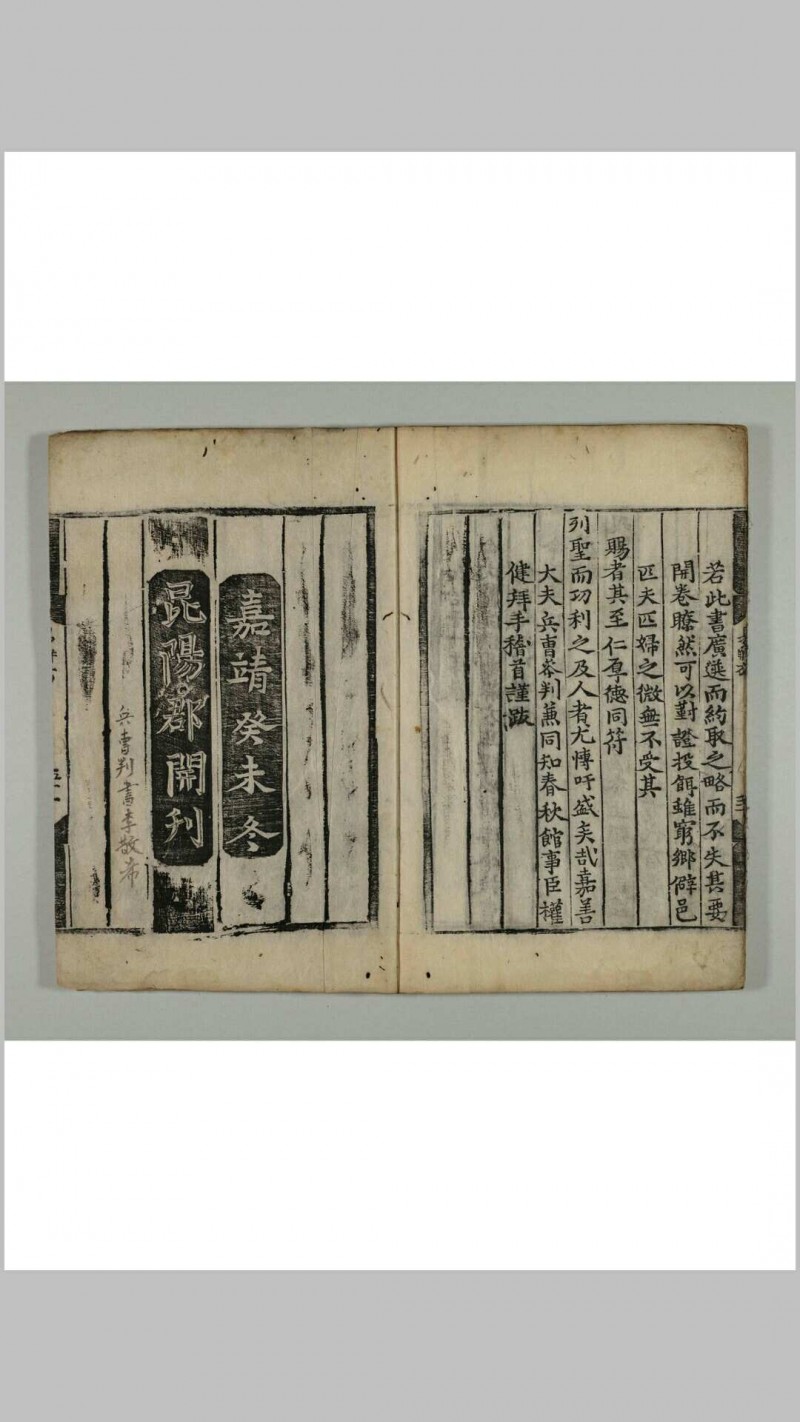 若此書廣選而約取之略而不失其要
開卷瞭然可以對證投餌雖窮鄉僻邑
匹夫匹婦之微無不受其
賜者其至仁厚德同符
列聖而功利之及人者尤博吁盛矣哉嘉善
大夫兵曹叅判蒹同知春秋館事臣權
健拜手稽首謹跋
嘉靖癸未冬
昆陽郡開刋
兵曹判書李